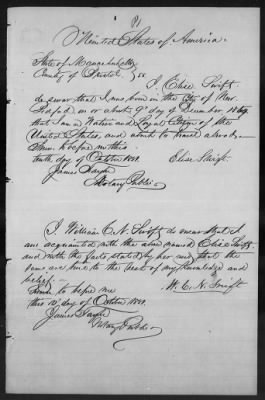 United States of America.
State of Massachusetts
County of Bristol } ss
I, Elise Swift
do swear that I was born in the City of New
Bedford on or about 9th day of December 18
that I am a Native and Loyal Citizen of the
United States, and about to travel abroad.
Sworn to before me this
tenth day of October 1881. Elise Swift.
James Taylor
Notary Public.
I William C. N. Swift, do swear that I
am acquainted with the above named Elise Swift
and with the facts stated by her and that the
same are true to the best of my knowledge and
belief.
W. C. N. Swift.
Sworn to before me
this 10 day of October 1881.
James Taylor
Notary Public